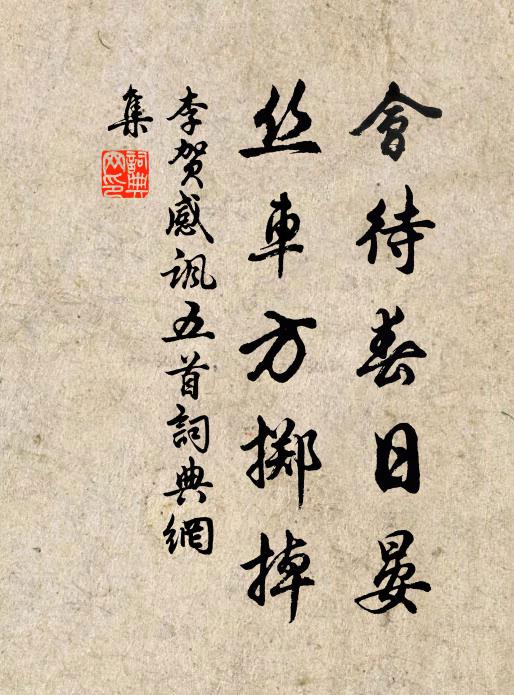 會待春日晏
丝車方掷掉
李贺感諷五首詞典網
集
詞典
网印